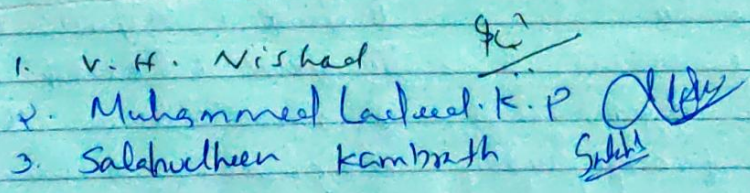 1. V. H. Nishad
2. Muhammed Ladeed. K. P
3. Salahudheen Kambrath